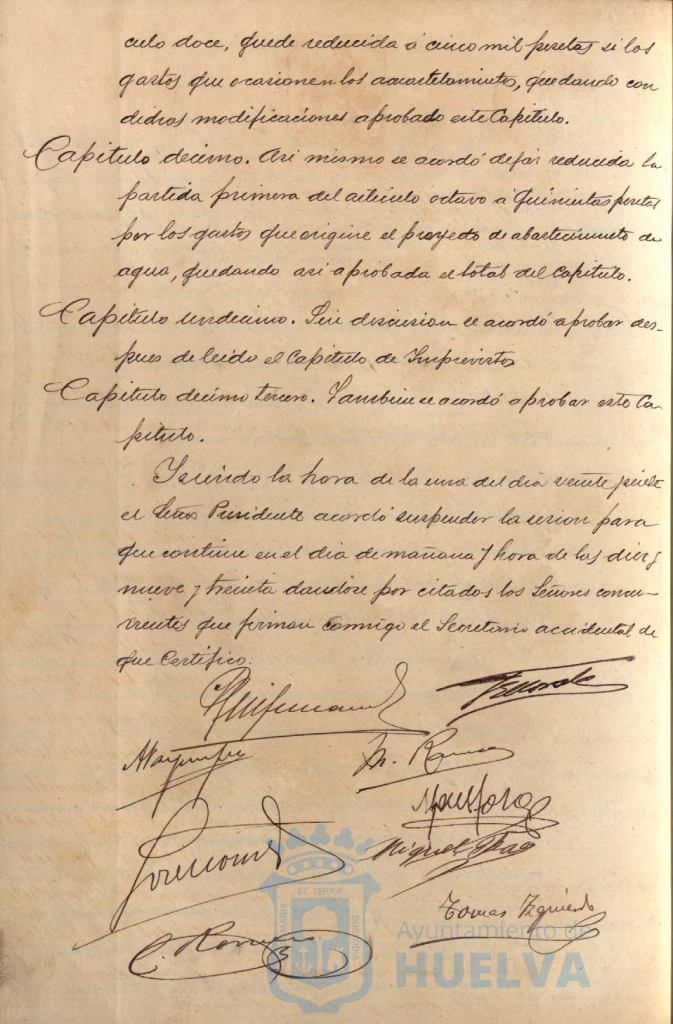 culo doce, quede reducida á cinco mil pesetas si los
gastos que ocasionen los acuartelamientos, quedando con
dichas modificaciones aprobado este Capitulo.
Capitulo decimo. Asi mismo se acordó dejar reducida la
partida primera del articulo octavo á quinientas pesetas
por los gastos que origine el proyecto de abastecimiento de
agua, quedando asi aprobada el total del Capitulo.
Capitulo undecimo. Sin discusion se acordó aprobar des-
pues de leido el Capitulo de Imprevistos
Capitulo decimo tercero. Tambien se acordó aprobar este Ca-
pitulo.
Y siendo la hora de la una del dia veinte
el Señor Presidente acordó suspender la sesion para
que continue en el dia de mañana y hora de las diez y
nueve y treinta dandose por citados los Señores concu-
rrentes que firman conmigo el Secretario accidental de
que Certifico.
M.
Miguel
Tomas Izquierdo
C. Romero
ET TERRÆ
CUSTODIA
Ayuntamiento de
HUELVA